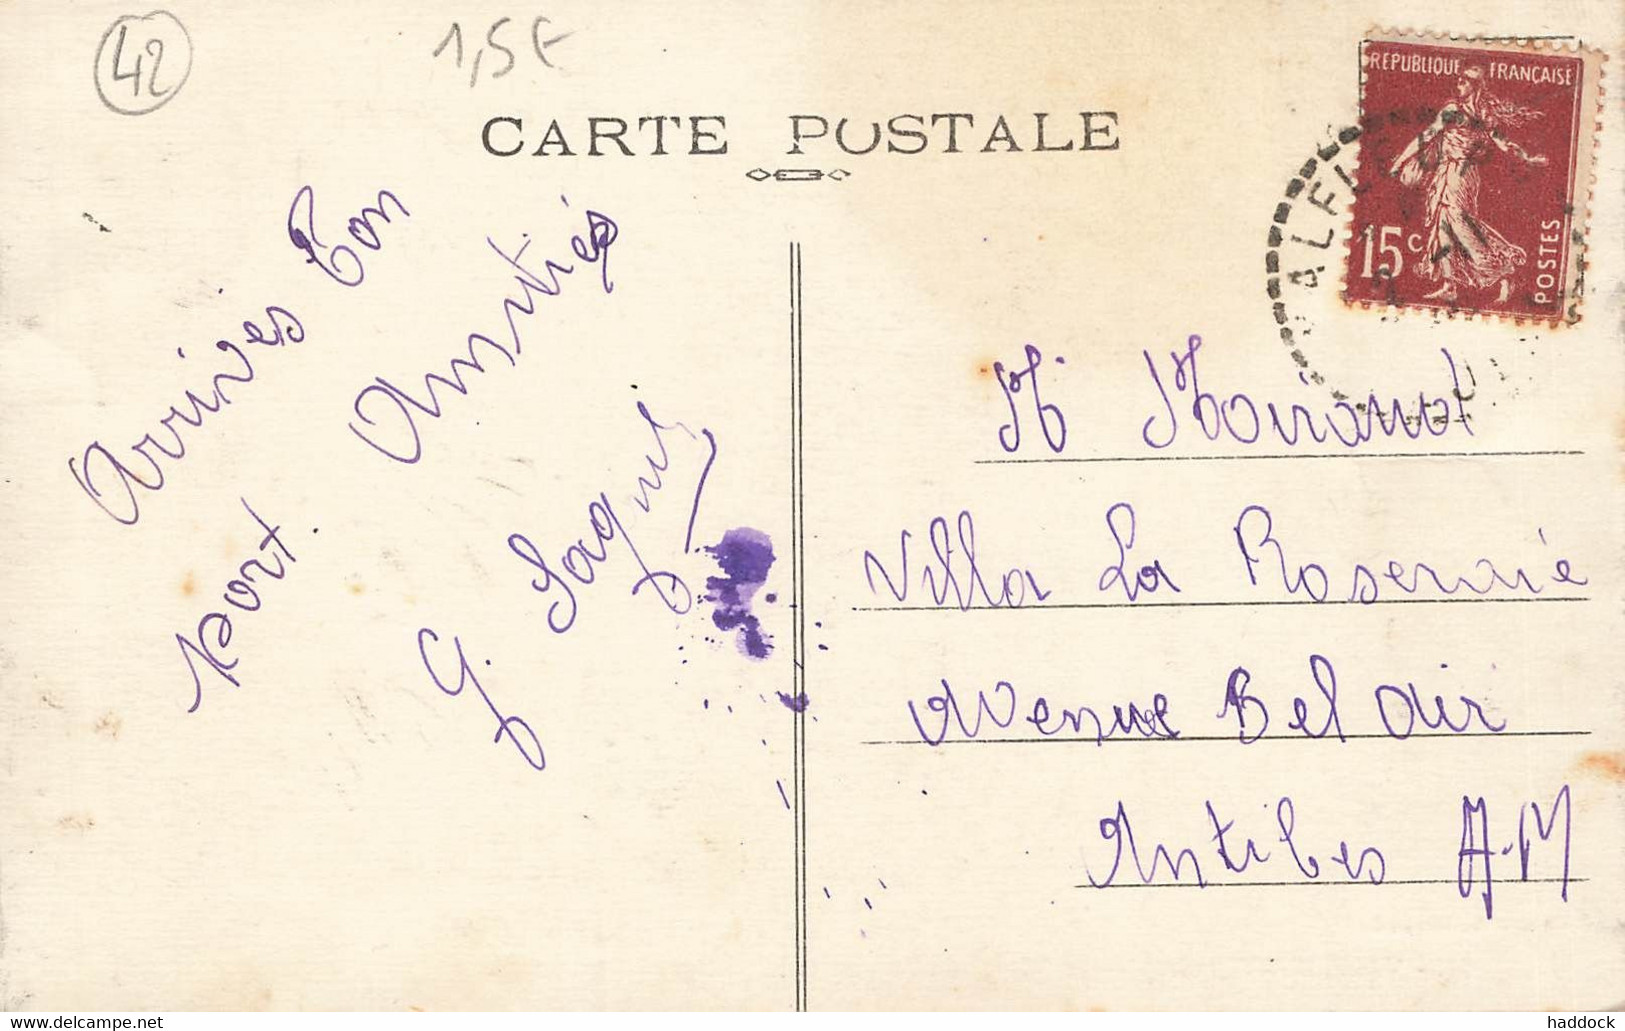 42
1,5€
CARTE POSTALE
REPUBLIQUE FRANÇAISE
15c
POSTES
VALFLEURY
Arrivés bon
port. Amitiés
G.
M
Villa La Roseraie
Avenue Bel air
Antibes A-M
delcampe.net
haddock